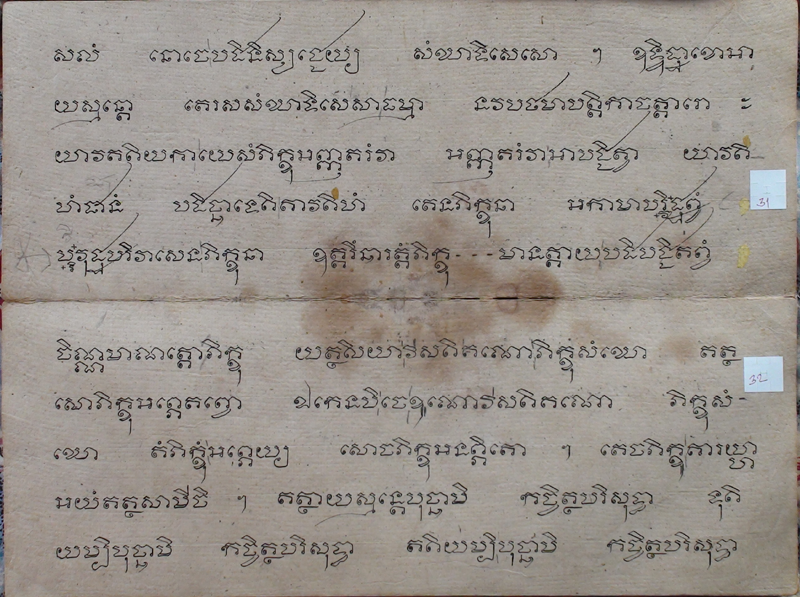 សលំ នោចេបដិនិស្សជ្ជេយ្យ សំឃាទិសេសោ ៗ ឧទ្ទិដ្ឋាខោអា
យស្មន្តោ តេរសសំឃាទិសេសាធម្មា នវបឋមាបត្តិកាចត្តារោ ៈ
យាវតតិយកាយេសំភិក្ខុអញ្ញតរំវា អញ្ញតរំវាអាបជ្ជិត្វា យាវតិ-
ហំជានំ បដិច្ឆាទេតិតាវតិហំ តេនភិក្ខុនា អកាមាបរិវត្ថព្វំ
31
បរិវុត្ថបរិវាសេនភិក្ខុនា ឧត្តរិឆារត្តំភិក្ខុ---មានត្តាយបដិបជ្ជិតព្វំ
ចិណ្ណមានត្តោភិក្ខុ យត្ថសិយាវីសតិគណោភិក្ខុសំឃោ តត្ថ
32
សោភិក្ខុអព្ភេតព្វោ ឯកេនបិចេឩណោវីសតិគណោ ភិក្ខុសំ-
ឃោ តំភិក្ខុំអព្ភេយ្យ សោចភិក្ខុអនព្ភិតោ ៗ តេចភិក្ខុគារយ្ហា
អយំតត្ថសាមីចិ ៗ តត្ថាយស្មន្តេបុច្ឆាមិ កច្ចិត្ថបរិសុទ្ធា ទុតិ
យម្បិបុច្ឆាមិ កច្ចិត្ថបរិសុទ្ធា តតិយម្បិបុច្ឆាមិ កច្ចិត្ថបរិសុទ្ធា